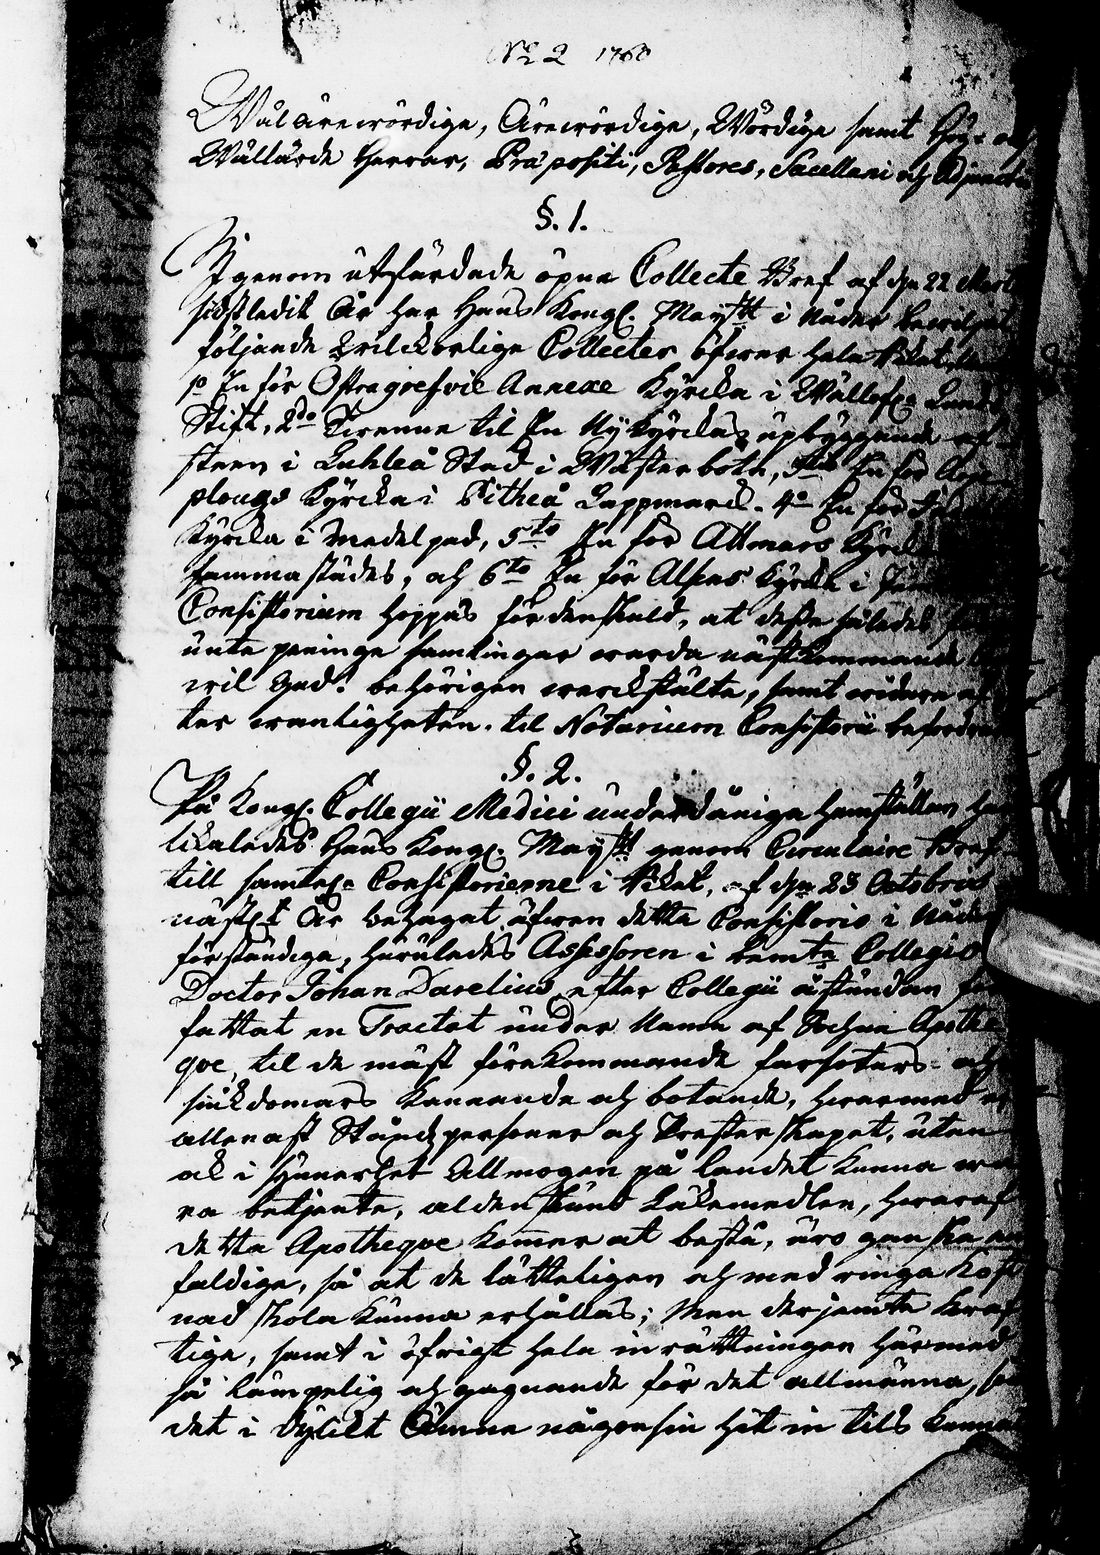 No 2 1760
Wälärewördige, Ärewördige, Wördige samt Hög- och
Wällärde Herrar, Præpositi, Pastores, Sacellani och Adjuncti
§. 1.
Igenom utfärdade öpna Collecte Bref af den 22 Mart
sidstledit År har Hans Kongl. Maytt i Nåder bewiljat
följande Collecter öfwer hela Riket,
1o En för Östra grefvie Annexe Kyrcka i Lunds
Stift, 2do Twenne til En Ny Kyrckas upbyggande af
sten i Luhleå Stad i Wästerbotn, 3tio En för Arje-
plougs Kyrcka i Pitheå Lappmarck. 4o En för
Kyrcka i Medelpad, 5to En för Attmars Kyrcka
sammastädes, och 6to En för Alsens Kyrcka i
Consistorium hoppas fördenskuld, at desse således
unte peninge samlingar warda nästkommande
wil Gud! behörigen werckstälte, samt widare ef-
ter wanligheten til Notarium Consistorii befordrade
§. 2.
På Kongl. Collegii Medici underdåniga hemställan har
likaledes Hans Kongl. Maytt genom Circulaire Bref
till samtel. Consistorierne i Riket, af den 23 Octobris
nästl. År behagat äfwen detta Consistorio i Nåder
förständiga, huruledes Assessoren i bemte Collegio
Doctor Johan Darelius, efter Collegii åstundan för-
fattat en Tractat under Namn af Sochne Apothe-
qve, til de mäst förekommande farsoters- och
siukdomars kännande och botande, hwarmed ej
allenast Ståndspersoner och Presterskapet, utan
ock i synnerhet Allmogen på landet kunna wa-
ra betjente, aldenstund Läkemedlen, hwaraf
detta Apotheqve kommer at bestå, äro ganska en-
faldige, så at de lätteligen och med ringa kost-
nad skola kunna erhållas; Men derjemte kraf-
tige, samt i öfrigt hela inrättningen härmed
så lämpelig och gagnande för det allmänna, som
det i dylikt Ämne någonsin hit in tils kunnat